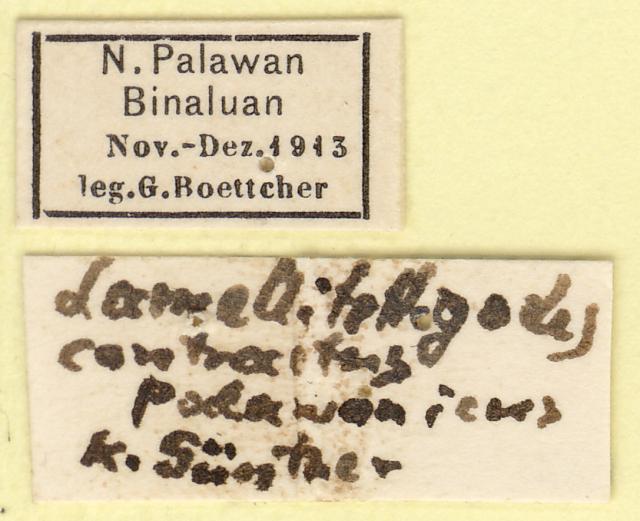 N. Palawan
Binaluan
Nov.-Dez.1913
leg.G.Boettcher
Lamellitettigodes
contractus
palawanicus
K. Günther